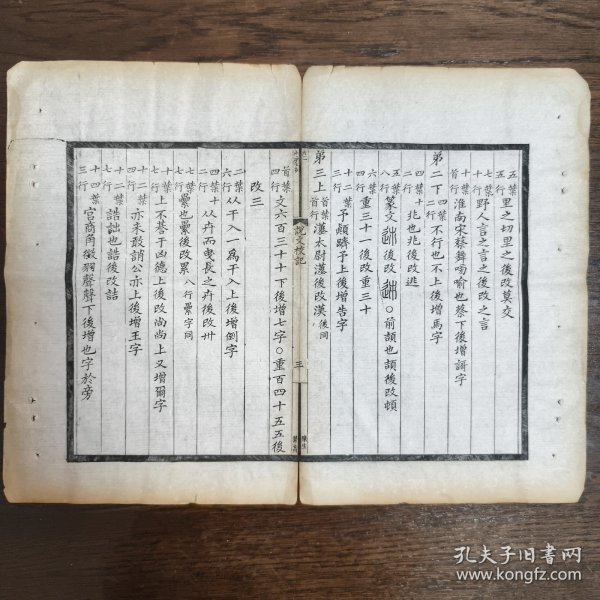 五葉五行里之切里之後改莫交
七葉十行野人言之言之後改之言
十葉首行淮南宋蔡舞嗙喻也蔡下後增謌字
弟二下四葉四行不行也不上後增馬字
十四葉二行兆也兆後改逃
八行篆文後改〇前頡也頡後改頓
六葉六行重三十一後改重三十
十二葉三行予顛躋予上後增告字
弟三上首葉首行漢太尉漢後改漢後同
說文校記
三
首葉四行文六百三十十下後增七字〇重百四十五五後
改三
二葉六行从干入一為干入上後增倒字
四葉十二行从卉而曳長之卉後改卅
七葉七行纍也纍後改累八行纍字同
十葉七行上不諅于凶德上後改尚尚上又增爾字
十一葉四行亦未敢誚公亦上後增王字
十二葉七行誥詘也誥後改詰
十四葉三行宮商角徵羽聲聲下後增也字於旁
孔夫子旧书网
www.kongfz.com